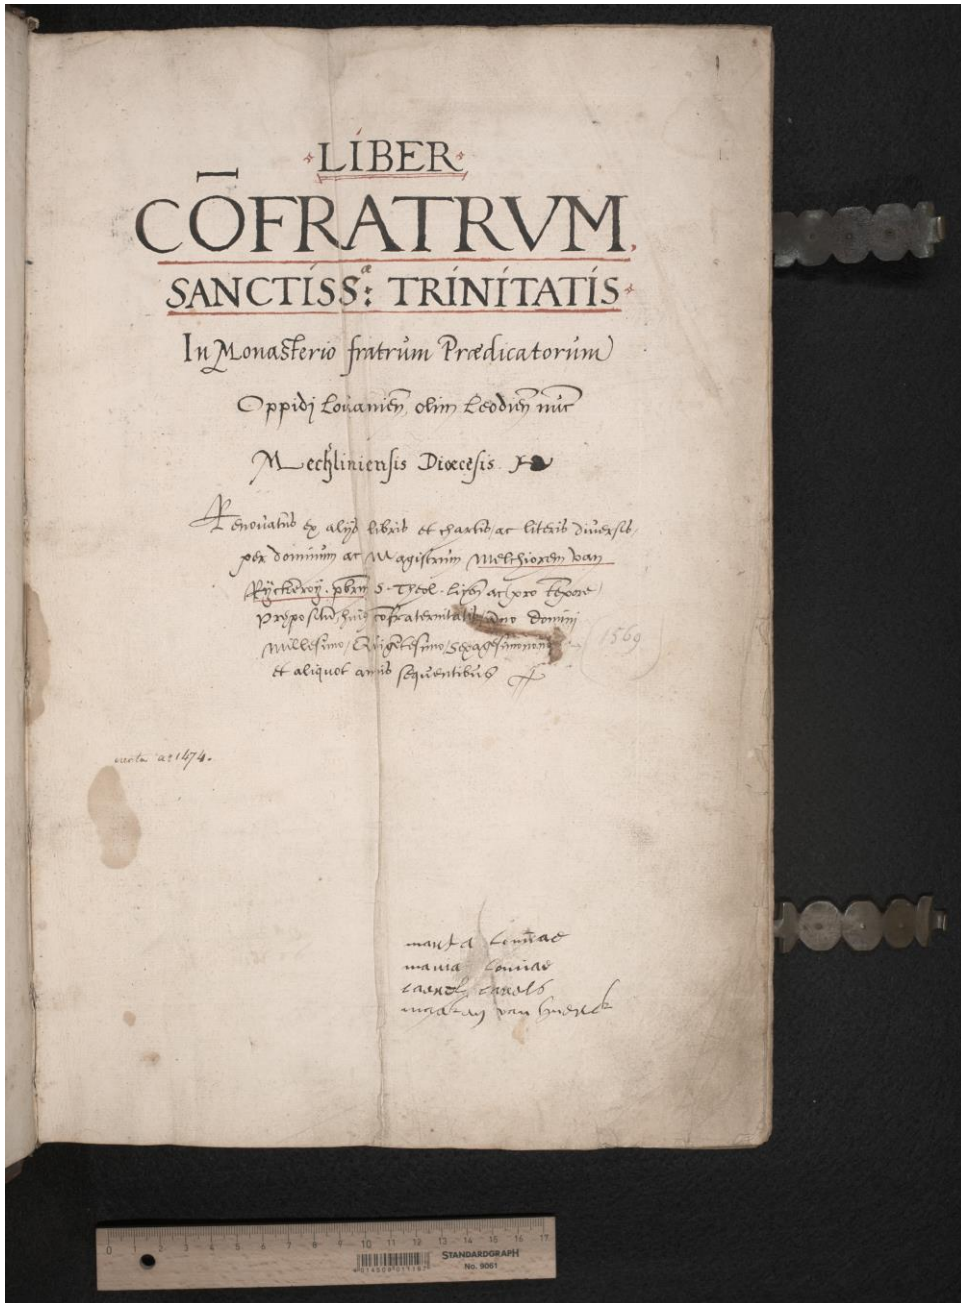 1
LIBER
CŌFRATRVM.
SANCTISSᵃᵉ: TRINITATIS
In Monasterio fratrum Prædicatorum
Oppidj Lovanieñ, olim Leodieñ nūc
Mechliniensis Diœcesis
Renovatus ex alijs libris et chartis, ac literis diversis,
per dominum ac Magistrum Melchiorem van
Ryckeroy. pbrm S. Theol. ac pro tēpore
Prepositū, huiꝰ cōfraternitatis, Año Domini
Millesimo, Quigētesimo, Sexagesimonono
(1569)
et aliquot annis sequentibus
aº 1474.
maria
carels
van
0 1 2 3 4 5 6 7 8 9 10 11 12 13 14 15 16 17
STANDARDGRAPH
No. 9061